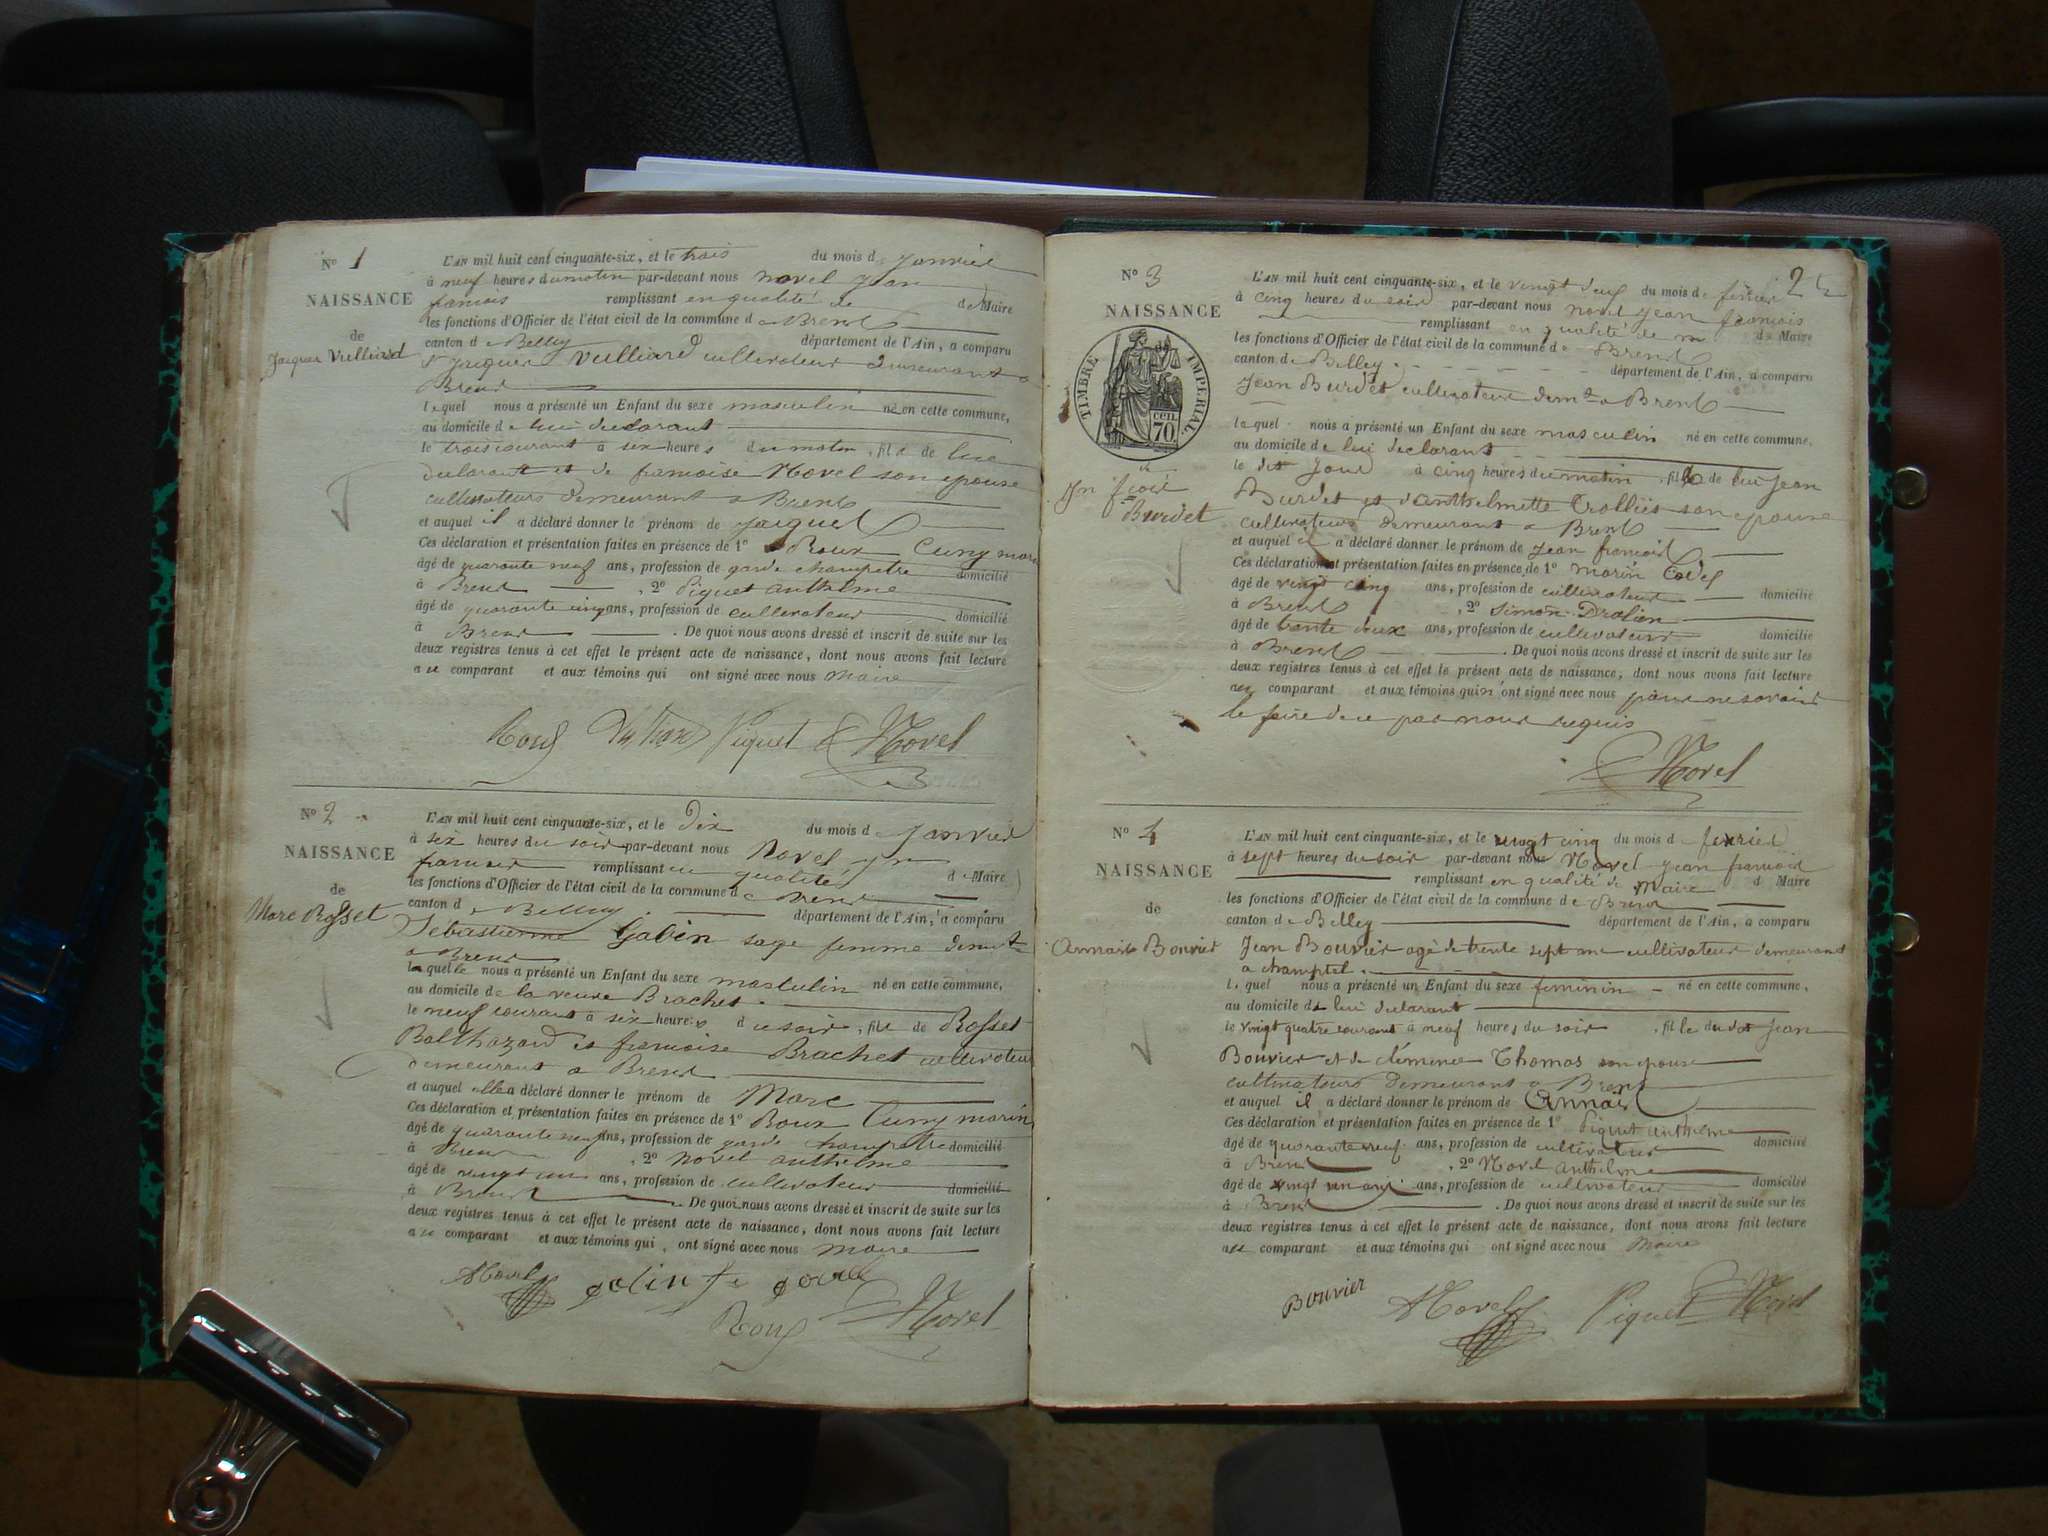 N° 1
NAISSANCE
de
Jacques Vulliard
L'AN mil huit cent cinquante-six, et le trois du mois de janvier
à neuf heures du matin par-devant nous Novel jean
francois remplissant en qualité de de Maire
les fonctions d'Officier de l'état civil de la commune de Brens
canton de Belley département de l'Ain, a comparu
Jacques Vulliard cultivateur demeurant a
Brens
lequel nous a présenté un Enfant du sexe masculin né en cette commune,
au domicile de lui declarant
le trois courant à six heures du matin, fils de lui
declarant et de francoise Novel son epouse
cultivateurs demeurant a Brens
et auquel il a déclaré donner le prénom de jacques
Ces déclaration et présentation faites en présence de 1° Roux Cuny marin
âgé de quarante neuf ans, profession de garde champetre domicilié
à Brens, 2° Piquet anthelme
âgé de quarante cinq ans, profession de cultivateur domicilié
à Brens. De quoi nous avons dressé et inscrit de suite sur les
deux registres tenus à cet effet le présent acte de naissance, dont nous avons fait lecture
au comparant et aux témoins qui ont signé avec nous Maire
Roux Piquet Novel
N° 2
NAISSANCE
de
Marc Rosset
L'AN mil huit cent cinquante-six, et le Dix du mois de janvier
à six heures du soir par-devant nous Novel jn
francois remplissant en qualité de Maire
les fonctions d'Officier de l'état civil de la commune de Brens
canton de Belley département de l'Ain, a comparu
Sebastienne Galin sage femme demt
a Brens
laquelle nous a présenté un Enfant du sexe masculin né en cette commune,
au domicile de la veuve Brachet
le neuf courant à six heures du soir, fils de Rosset
Balthazard et francoise Brachet cultivateurs
demeurant a Brens
et auquel elle a déclaré donner le prénom de Marc
Ces déclaration et présentation faites en présence de 1° Roux Cuny marin
âgé de quarante neuf ans, profession de garde champetre domicilié
à Brens, 2° Novel anthelme
âgé de vingt un ans, profession de cultivateur domicilié
à Brens. De quoi nous avons dressé et inscrit de suite sur les
deux registres tenus à cet effet le présent acte de naissance, dont nous avons fait lecture
au comparant et aux témoins qui ont signé avec nous maire
Novel galin
Roux Novel
2
N° 3
NAISSANCE
TIMBRE IMPERIAL
CEN. 70
de
Jn fcois
Burdet
L'AN mil huit cent cinquante-six, et le vingt deux du mois de fevrier
à cinq heures du soir par-devant nous Novel jean francois
remplissant en qualité de m de Maire
les fonctions d'Officier de l'état civil de la commune de Brens
canton de Belley département de l'Ain, a comparu
Jean Burdet cultivateur demt a Brens
lequel nous a présenté un Enfant du sexe masculin né en cette commune,
au domicile de lui declarant
le dit jour à cinq heures du matin, fils de lui jean
Burdet et d'anthelmette Trolliet son epouse
cultivateurs demeurant a Brens
et auquel il a déclaré donner le prénom de jean francois
Ces déclaration et présentation faites en présence de 1° marin
âgé de vingt cinq ans, profession de cultivateur domicilié
à Brens, 2° Simon
âgé de trente deux ans, profession de cultivateur domicilié
à Brens. De quoi nous avons dressé et inscrit de suite sur les
deux registres tenus à cet effet le présent acte de naissance, dont nous avons fait lecture
au comparant et aux témoins qui n'ont signé avec nous pour ne savoir
le faire de ce par nous requis
Novel
N° 4
NAISSANCE
de
Annais Bouvier
L'AN mil huit cent cinquante-six, et le vingt cinq du mois de fevrier
à sept heures du soir par-devant nous Novel jean francois
remplissant en qualité de Maire d Maire
les fonctions d'Officier de l'état civil de la commune de Brens
canton de Belley département de l'Ain, a comparu
Jean Bouvier agé de trente sept ans cultivateur demeurant
a champtel
lequel nous a présenté un Enfant du sexe feminin né en cette commune,
au domicile de lui declarant
le vingt quatre courant à neuf heures du soir, fille du dit Jean
Bouvier et de clémence Thomas son epouse
cultivateurs demeurant a Brens
et auquel il a déclaré donner le prénom de Annais
Ces déclaration et présentation faites en présence de 1° Piquet anthelme
âgé de quarante neuf ans, profession de cultivateur domicilié
à Brens, 2° Novel anthelme
âgé de vingt un ans, profession de cultivateur domicilié
à Brens. De quoi nous avons dressé et inscrit de suite sur les
deux registres tenus à cet effet le présent acte de naissance, dont nous avons fait lecture
au comparant et aux témoins qui ont signé avec nous Maire
Bouvier Novel Piquet Novel